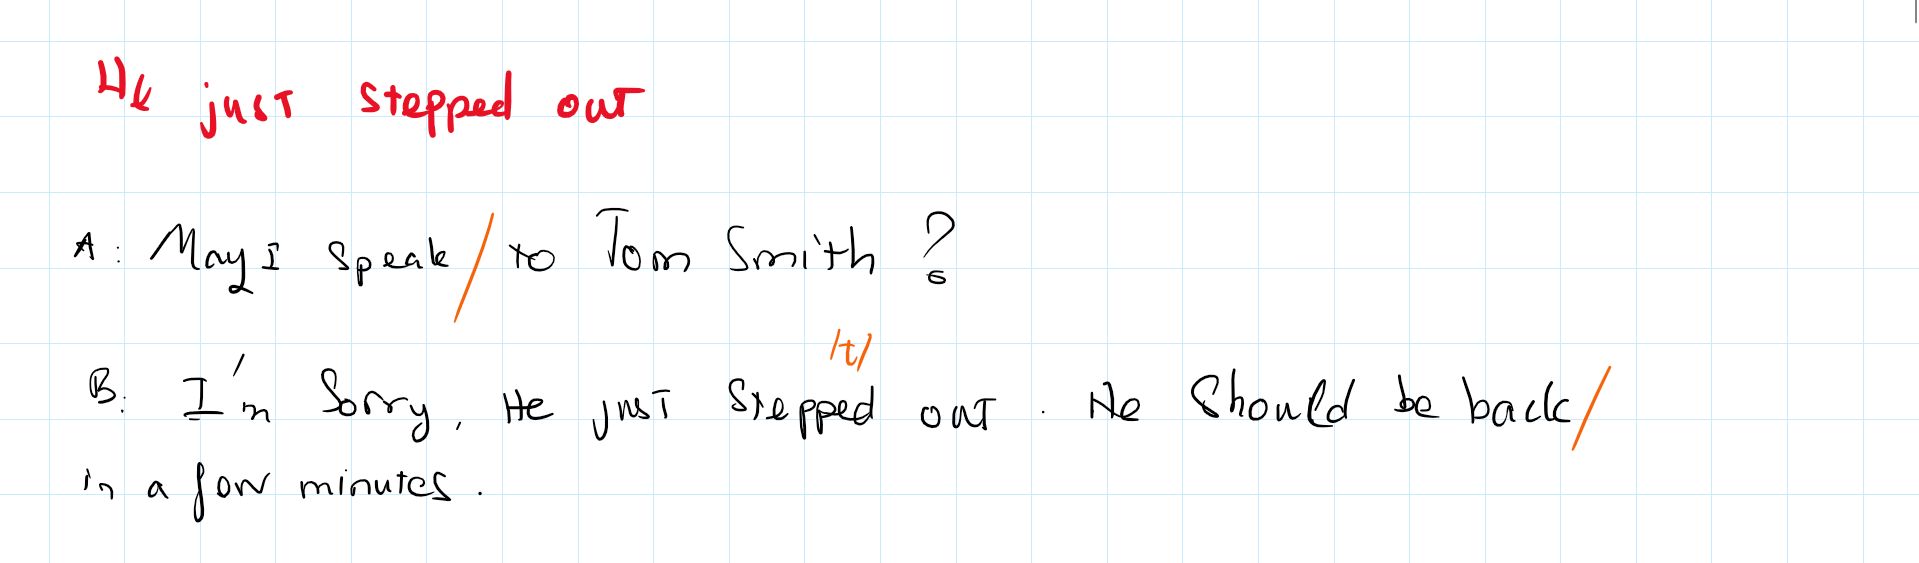 He just stepped out
A: May I speak / to Tom Smith ?
/t/
B: I'm Sorry, He just Stepped out. He Should be back /
in a few minutes.